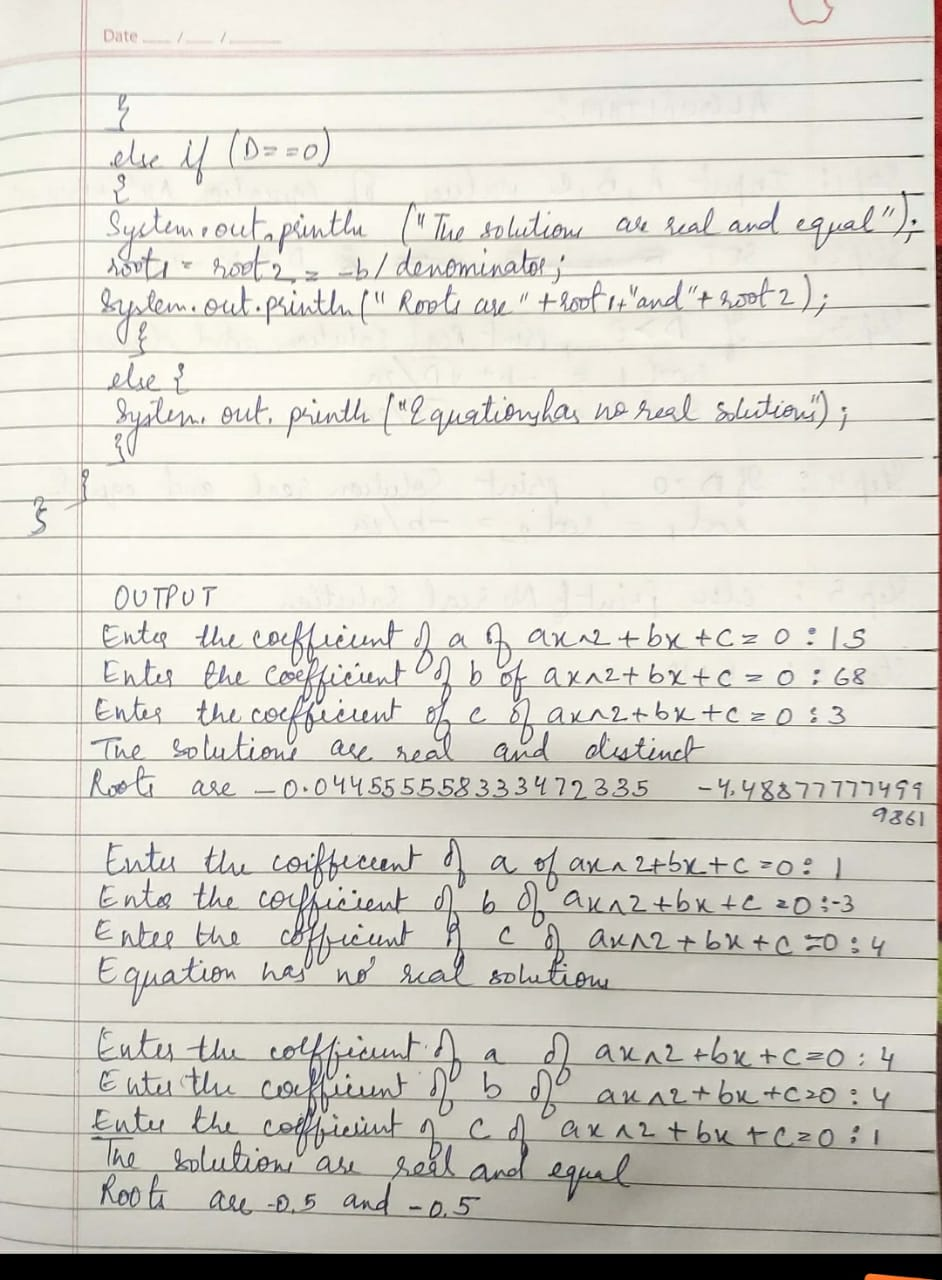 Date __/__/____
}
else if (D==0)
{
System.out.println ("The solutions are real and equal");
root1 = root2 = -b/denominator;
System.out.println(" Roots are "+root1+"and"+root2);
}
else {
System.out.println ("Equation has no real solutions");
}
}
}
OUTPUT
Enter the coefficient of a of ax^2+bx+c=0 : 15
Enter the coefficient of b of ax^2+bx+c=0 : 68
Enter the coefficient of c of ax^2+bx+c=0 : 3
The solutions are real and distinct
Roots are -0.044555558333472335 -4.48877777499
9861
Enter the coifficeent of a of ax^2+bx+c=0: 1
Enter the coefficient of b of ax^2+bx+c=0:-3
Enter the cofficient of c of ax^2+bx+c=0:4
Equation has no real solutions
Enter the coefficient of a of ax^2+bx+c=0 : 4
Enter the coefficient of b of ax^2+bx+c=0 : 4
Enter the coefficient of c of ax^2+bx+c=0 : 1
The solutions are real and equal
Roots are -0.5 and -0.5